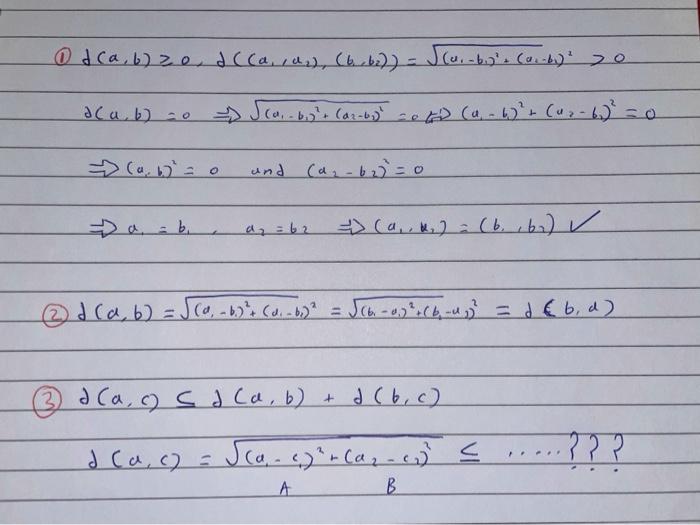 ① d(a,b) ≥ 0, d((a₁,a₂), (b₁,b₂)) = √(a₁-b₁)² + (a₂-b₂)² > 0
d(a,b) = 0 ⇒ √(a₁-b₁)² + (a₂-b₂)² = 0 ⇔ (a₁-b₁)² + (a₂-b₂)² = 0
⇒ (a₁ b₁)² = 0 and (a₂-b₂)² = 0
⇒ a₁ = b₁, a₂ = b₂ ⇒ (a₁,a₂) = (b₁,b₂) ✓
② d(a,b) = √(a₁-b₁)² + (a₂-b₂)² = √(b₁-a₁)² + (b₂-a₂)² = d(b,a)
③ d(a,c) ≤ d(a,b) + d(b,c)
d(a,c) = √(a₁-c₁)² + (a₂-c₂)² ≤ .....???
A B